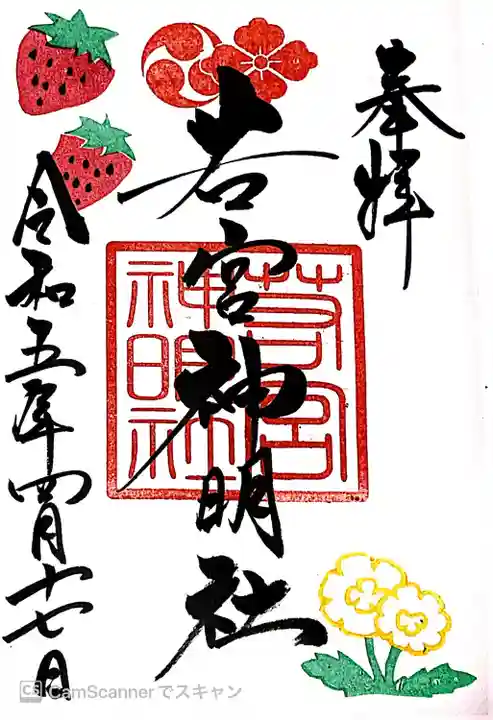 奉拝
若宮神明社
若宮
神明社
令和五年四月十七日
CS CamScannerでスキャン